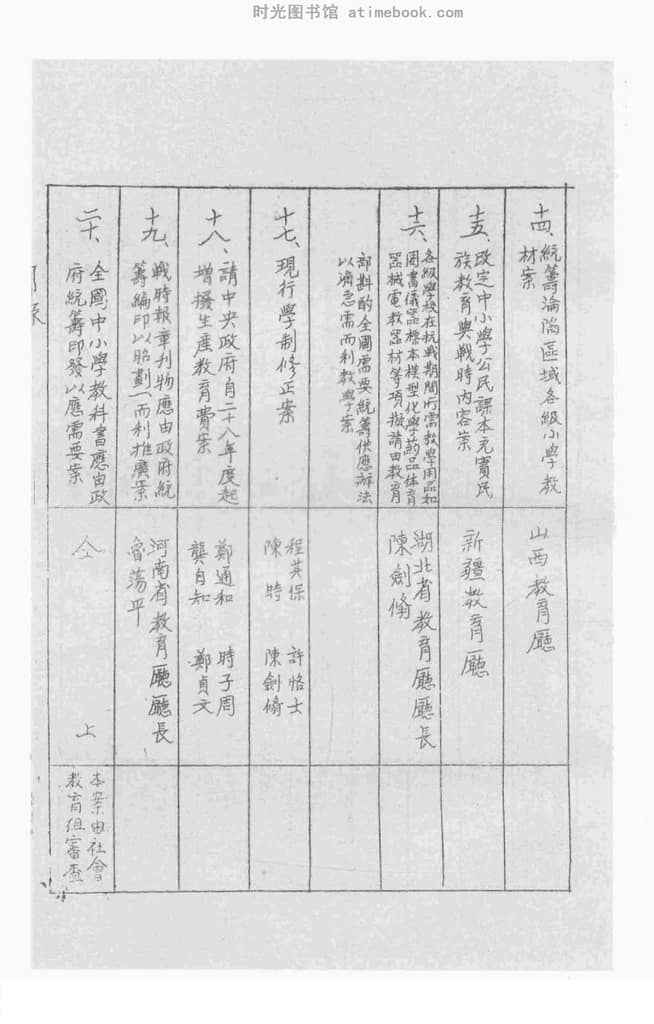 时光图书馆 atimebook.com
十四、統籌淪陷區域各級小學教
材案
山西教育廳
十五、改定中小學公民課本充實民
族教育與戰時內容案
新疆教育廳
十六、各級學校在抗戰期間所需教學用品如
圖書儀器標本模型化學葯品体育
器械電教器材等項擬請由教育
部斟酌全國需要統籌供應辦法
以濟急需而利教學案
湖北省教育廳廳長
陳劍脩
十七、現行學制修正案
程其保 許恪士
陳時 陳劍脩
十八、請中央政府自二十八年度起
增撥生產教育費案
鄭通和 時子周
龔自知 鄭貞文
十九、戰時報章刊物應由政府統
籌編印以昭劃一而利推廣案
河南省教育廳廳長
魯蕩平
二十、全國中小學教科書應由政
府統籌印發以應需要案
仝 上
本案由社會
教育組審查